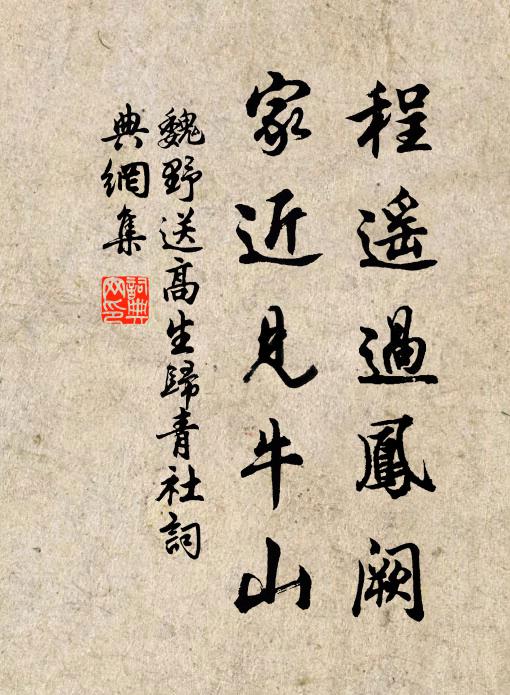 程遥過鳳闕
家近見牛山
魏野送高生歸青社詞
典網集
詞典
网印